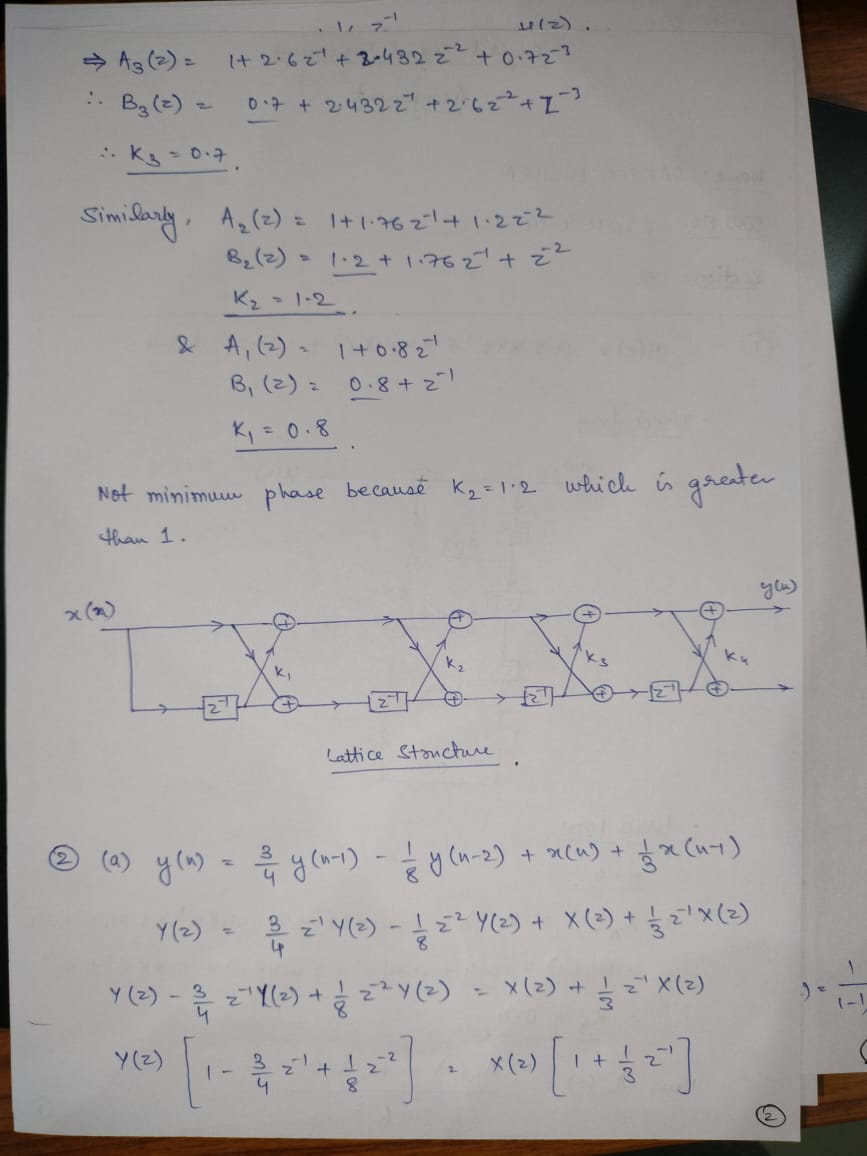 z⁻¹
⇒ A₃(z) = 1 + 2.6z⁻¹ + 2.432z⁻² + 0.7z⁻³
∴ B₃(z) = 0.7 + 2.432z⁻¹ + 2.6z⁻² + z⁻³
∴ K₃ = 0.7.
Similarly, A₂(z) = 1 + 1.76z⁻¹ + 1.2z⁻²
B₂(z) = 1.2 + 1.76z⁻¹ + z⁻²
K₂ = 1.2.
& A₁(z) = 1 + 0.8z⁻¹
B₁(z) = 0.8 + z⁻¹
K₁ = 0.8.
Not minimum phase because K₂ = 1.2 which is greater
than 1.
x(n) y(n)
+ + + +
K₁ K₂ K₃ K₄
z⁻¹ + z⁻¹ + z⁻¹ + z⁻¹ +
Lattice Structure.
② (a) y(n) = 3/4 y(n-1) - 1/8 y(n-2) + x(n) + 1/3 x(n-1)
Y(z) = 3/4 z⁻¹ Y(z) - 1/8 z⁻² Y(z) + X(z) + 1/3 z⁻¹ X(z)
Y(z) - 3/4 z⁻¹ Y(z) + 1/8 z⁻² Y(z) = X(z) + 1/3 z⁻¹ X(z)
Y(z) [1 - 3/4 z⁻¹ + 1/8 z⁻²] = X(z) [1 + 1/3 z⁻¹]
②